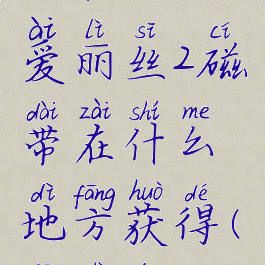 ài lì sī cí
爱丽丝2磁
dài zài shí me
带在什么
dì fāng huò dé
地方获得(